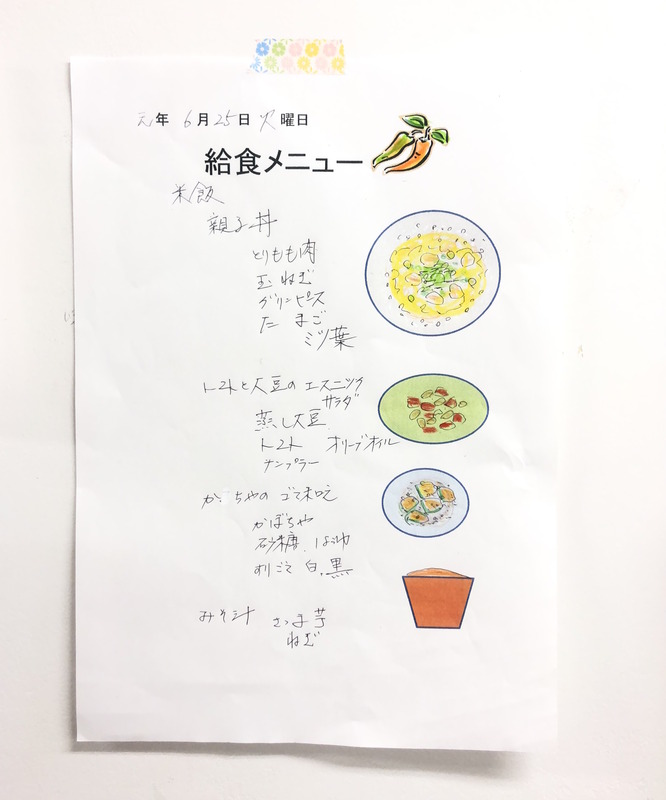 元年 6月25日 火曜日
給食メニュー
米飯
親子丼
とりもも肉
玉ねぎ
グリンピース
たまご
ミツ葉
トマトと大豆のエスニック
サラダ
蒸し大豆
トマト オリーブオイル
ナンプラー
かぼちゃのゴマ和え
かぼちゃ
砂糖、しょうゆ
すりごま 白、黒
みそ汁 さつま芋
ねぎ